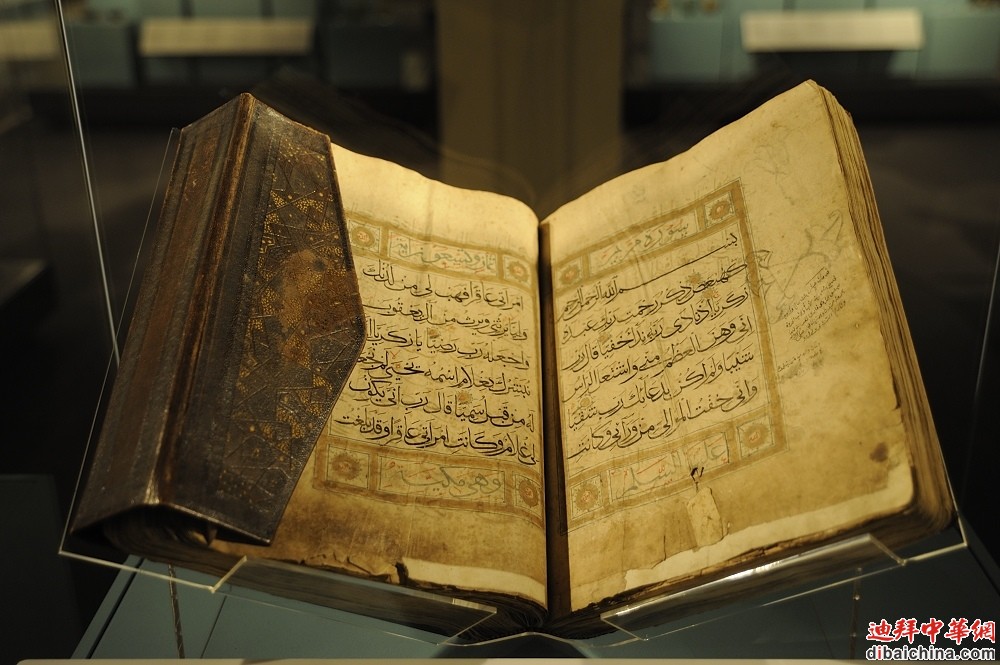 سورة مريم
بسم الله الرحمن الرحيم
كهيعص ذكر رحمت ربك عبده
زكريا اذ نادى ربه نداء خفيا قال رب
انى وهن العظم منى واشتعل الراس
شيبا ولم اكن بدعائك رب شقيا
وانى خفت الموالى من وراءى وكانت
عليها السلم
ثمان وتسعون اية
امراتى عاقرا فهب لى من لدنك
وليا يرثنى ويرث من ال يعقوب
واجعله رب رضيا يا زكريا انا
نبشرك بغلام اسمه يحيى لم نجعل
له من قبل سميا قال رب انى يكون
لى غلام وكانت امراتى عاقرا وقد بلغت
وهى مكية
迪拜中華網
dibaichina.com